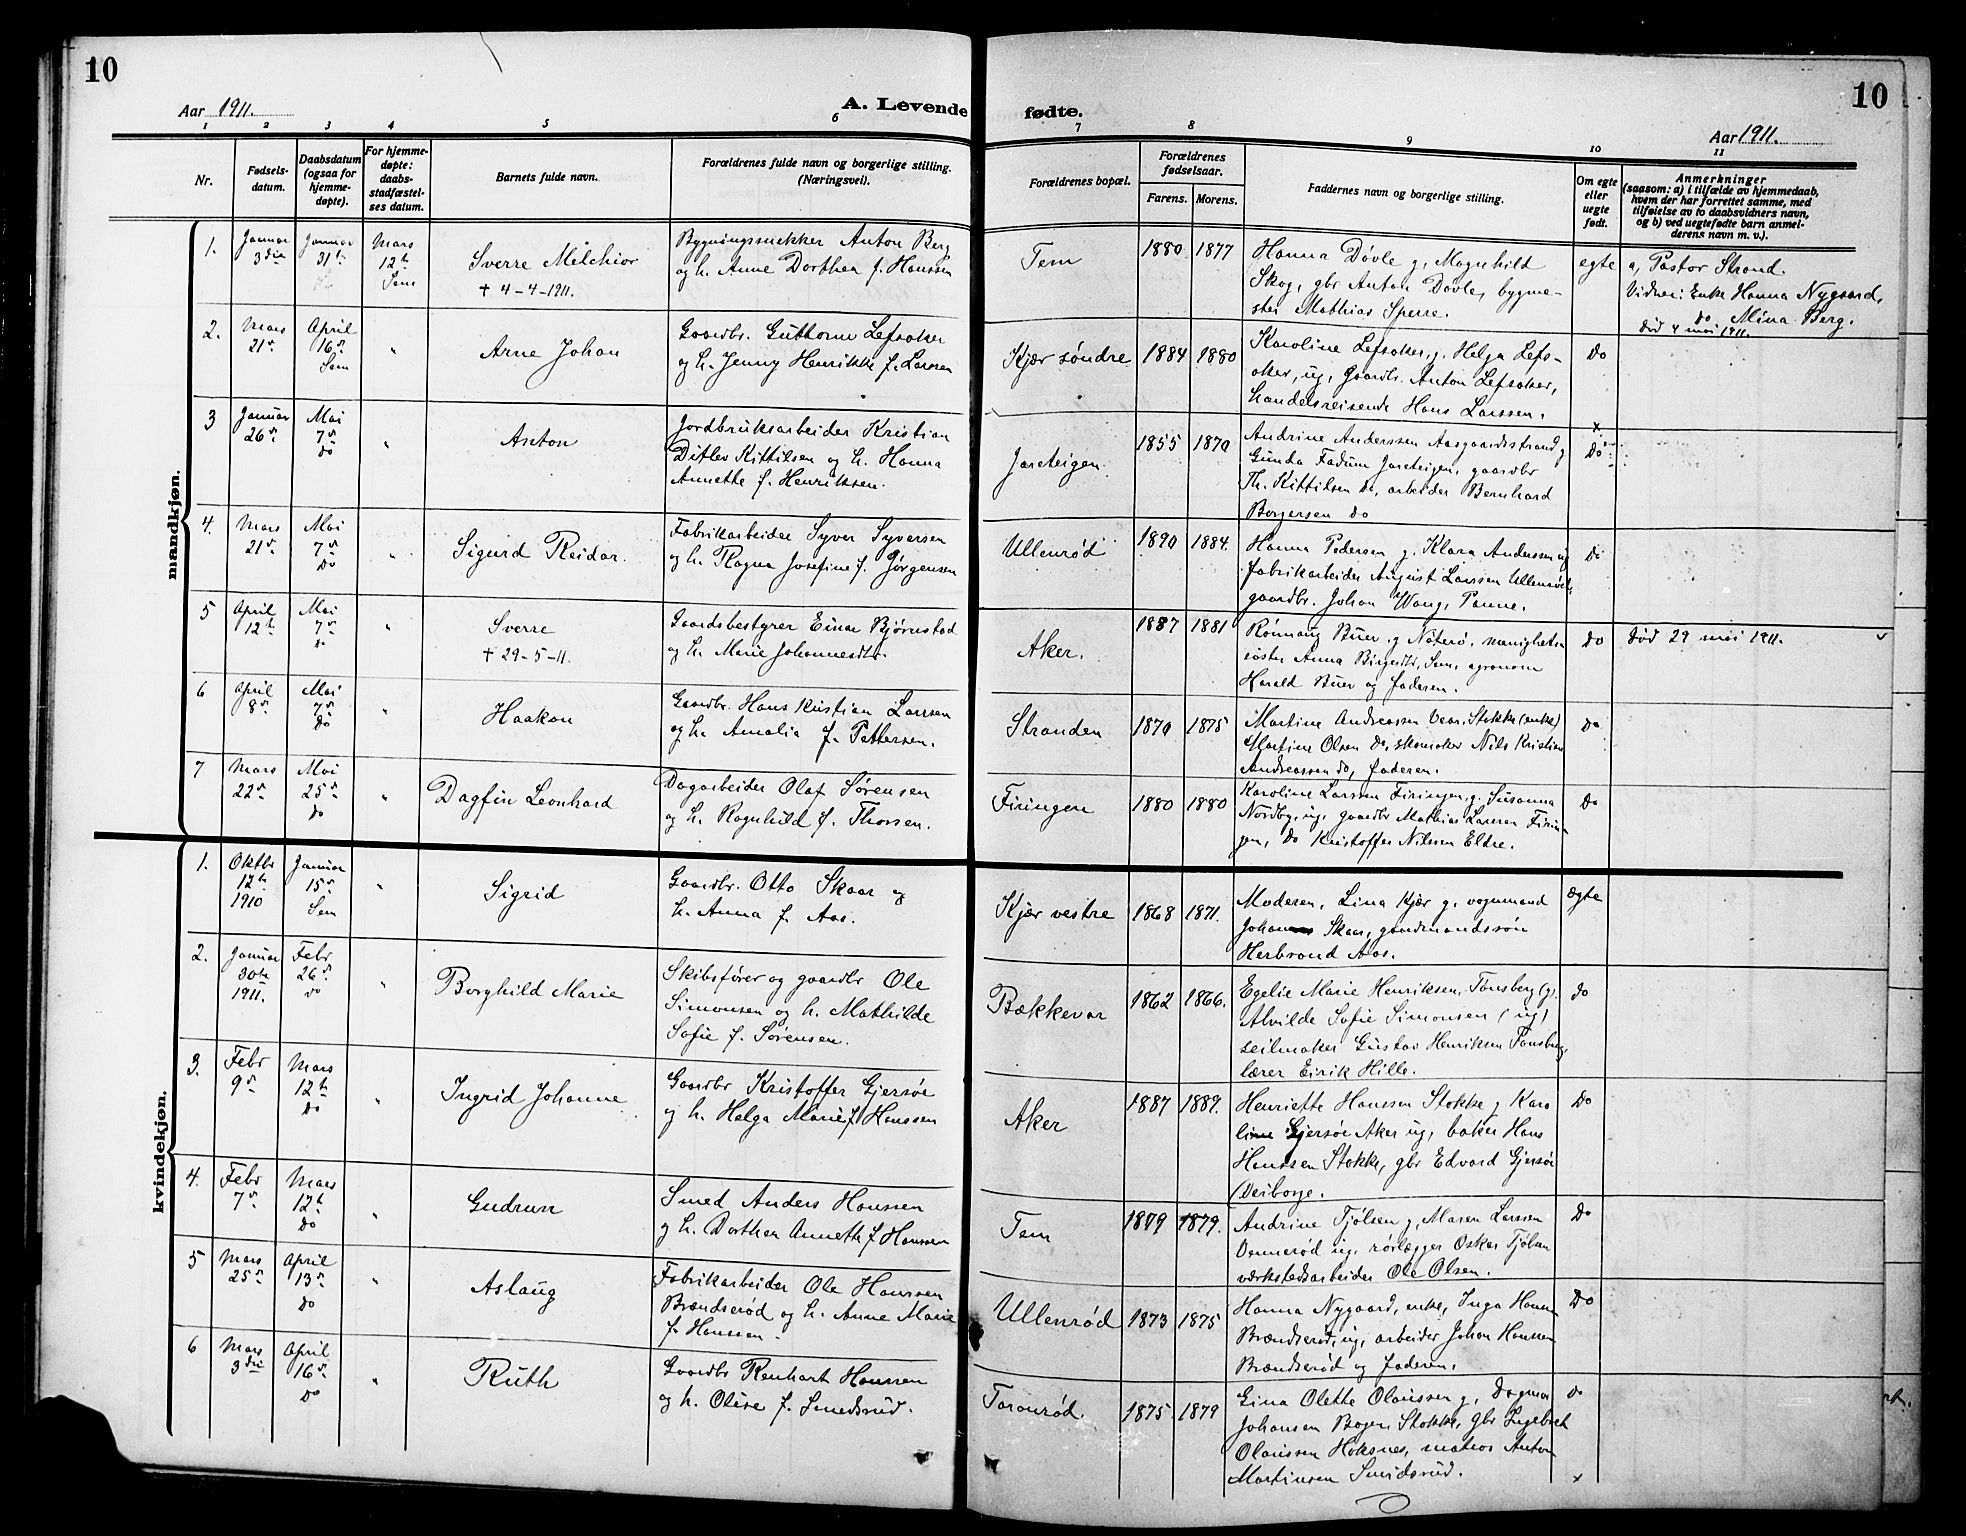 10
10
Aar 1911.
A. Levende fødte.
Aar 1911.
1 2 3 4 5 6 7 8 9 10 11
Nr.
Fødsels-
datum.
Daabsdatum
(ogsaa for
hjemme-
døpte).
For hjemme-
døpte:
daabs-
stadfæstel-
ses datum.
Barnets fulde navn.
Forældrenes fulde navn og borgerlige stilling.
(Næringsvei).
Forældrenes bopæl.
Forældrenes
fødselsaar.
Farens. Morens.
Faddernes navn og borgerlige stilling.
Om egte
eller
uegte
født.
Anmerkninger
(saasom: a) i tilfælde av hjemmedaab,
hvem der har forrettet samme, med
tilføielse av to daabsvidners navn,
og b) ved uegtefødte barn anmel-
derens navn m. v.).
mandkjøn.
1.
Januar
3die
Januar
31te
Mars
12te
Sem
Sverre Melchior
+ 4-4-1911.
Bygningssnekker Anton Berg
og h. Anne Dorthea f. Hanssen
Tem
1880 1877
Hanna Døvle g, Magnhild
Skog, gbr Anton Døvle, bygme-
ster Mathias Sperre.
egte
a, Pastor Strand.
Vidner: Enke Hanna Nygaard,
do Mina Berg.
død 4 mai 1911.
2.
Mars
21de
April
16de
Sem
"
Arne Johan
Gaardbr. Guttorm Lefsaker
og h. Jenny Henrikke f. Larsen
Kjær søndre
1884 1880
Karoline Lefsaker, g, Helga Lefs-
aker, ug, gaardbr. Anton Lefsaker,
handelsreisende Hans Larssen.
Do
3
Januar
26de
Mai
7de
Do
"
Anton
Jordbruksarbeider Kristian
Ditlev Kittilsen og h. Hanna
Annette f. Henriksen.
Jareteigen
1855 1870
Andrine Anderssen Aasgaardsstrand g
Gunda Fadum Jareteigen, gaardbr
Th. Kittilsen do, arbeider Bernhard
Borgersen do
x
Do
4.
Mars
21de
Mai
7de
Do
"
Sigurd Reidar.
Fabrikarbeider Syver Syversen
og h. Ragna Josefine f. Jørgensen
Ullenrød
1890 1884.
Hanna Pedersen g, Klara Anderssen ug
fabrikarbeider August Larssen Ullenrød,
gaardbr. Johan Wang, Panne.
Do
5
April
12te
Mai
7de
do
"
Sverre
+ 29-5-11.
Gaardsbestyrer Einar Bjørnstad
og h. Marie Johannesdtr.
Aker.
1887 1881
Rønnaug Buer g Nøterø, menighets-
søster Anna Birgerdtr, Sem, agronom
Harald Buer og faderen.
Do
Død 29 mai 1911.
6
April
8de
Mai
7de
Do
"
Haakon
Gaardbr. Hans Kristian Larssen
og h. Amalia f. Pettersen.
Stranden
1870 1875
Martine Andreassen Vear, Stokke (enke)
Martine Olsen do, skomaker Nils Kristian
Andreassen do, faderen.
Do
7
Mars
22de
Mai
25de
do
"
Dagfin Leonhard
Dagarbeider Olaf Sørensen
og h. Ragnhild f. Thorsen.
Firingen
1880 1880
Karoline Larssen Firingen, g, Susanna
Nordby, ug, gaardbr Mathias Larssen Firin-
gen, do Kristoffer Nilssen Eldre.
Do
kvindekjøn.
1.
Oktbr
12te
1910
Januar
15de
Sem
"
Sigrid
Gaardbr. Otto Skaar og
h. Anna f. Aas.
Kjær vestre
1868 1871.
Moderen, Lina Kjær g, vognmand
Johan Skaar, gaardmandssøn
Herbrand Aas.
ægte
2.
Januar
30te
1911.
Febr
26de
do
"
Borghild Marie
Skibsfører og gaardbr Ole
Simonsen og h. Mathilde
Sofie f. Sørensen.
Bækkevar
1862 1866.
Egelie Marie Henriksen, Tønsberg (g).
Alvilde Sofie Simonsen (ug)
seilmaker Gustav Henriksen Tønsberg,
lærer Eirik Hille.
do
3.
Febr
9de
Mars
12te
Do
"
Ingrid Johanne
Gaardbr Kristoffer Gjersøe
og h. Helga Marie f Hanssen
Aker
1887 1889.
Henriette Hanssen Stokke g Karo
line Gjersøe Aker ug, baker Hans
Hanssen Stokke, gbr Edvard Gjersøe

Do
4.
Febr
7de
Mars
12te
do
"
Gudrun
Smed Anders Hanssen
og h. Dorthea Anneth f Hanssen
Tem
1879 1879.
Andrine Tjølsen g, Maren Larssen
Vennerød ug, rørlægger Oskar Tjølsen
værkstedsarbeider Ole Olsen.
Do
5
Mars
25de
April
13de
do
"
Aslaug
Fabrikarbeider Ole Hanssen
Brændserød og h. Anne Marie
f. Hanssen.
Ullenrød
1873 1875
Hanna Nygaard, enke, Inga Hansen
Brændserød, ug, arbeider Johan Hanssen
Brændserød og faderen.
Do
6
Mars
3die
April
16de
do
"
Ruth
Gaardbr Renhart Hanssen
og h. Olise f. Smedsrud.
Taranrød
1875 1879
Gina Olette Olaussen g, Dagmar
Johansen Bogen, Stokke, gbr Ingebret
Olaussen Hoksnes, matros Anton
Martinsen Smidsrud.
Do
x